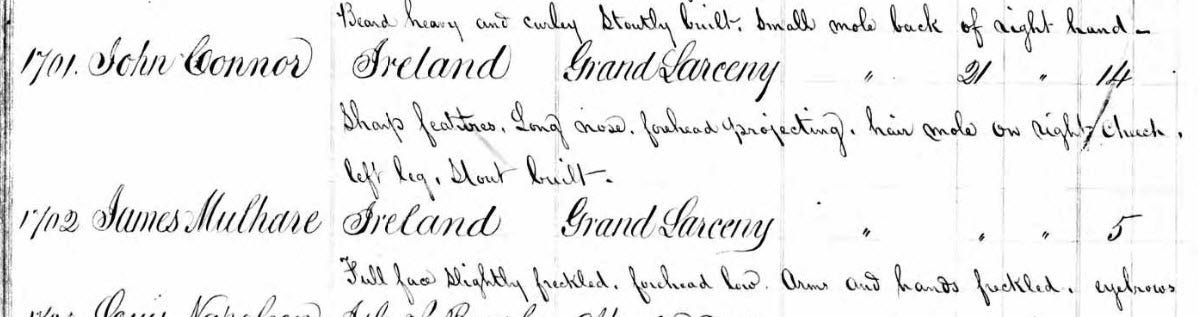 Beard heavy and curley Stoutly built. Small mole back of right hand —
1701. John Connor Ireland Grand Larceny " 21 " 14
Sharp features. Long nose. forehead projecting. hair mole on right cheek.
left leg. Stout built.
1702 James Mulhare Ireland Grand Larceny " " " 5
Full face slightly freckled. forehead low. Arms and hands freckled. eyebrows
Louis Napoleon